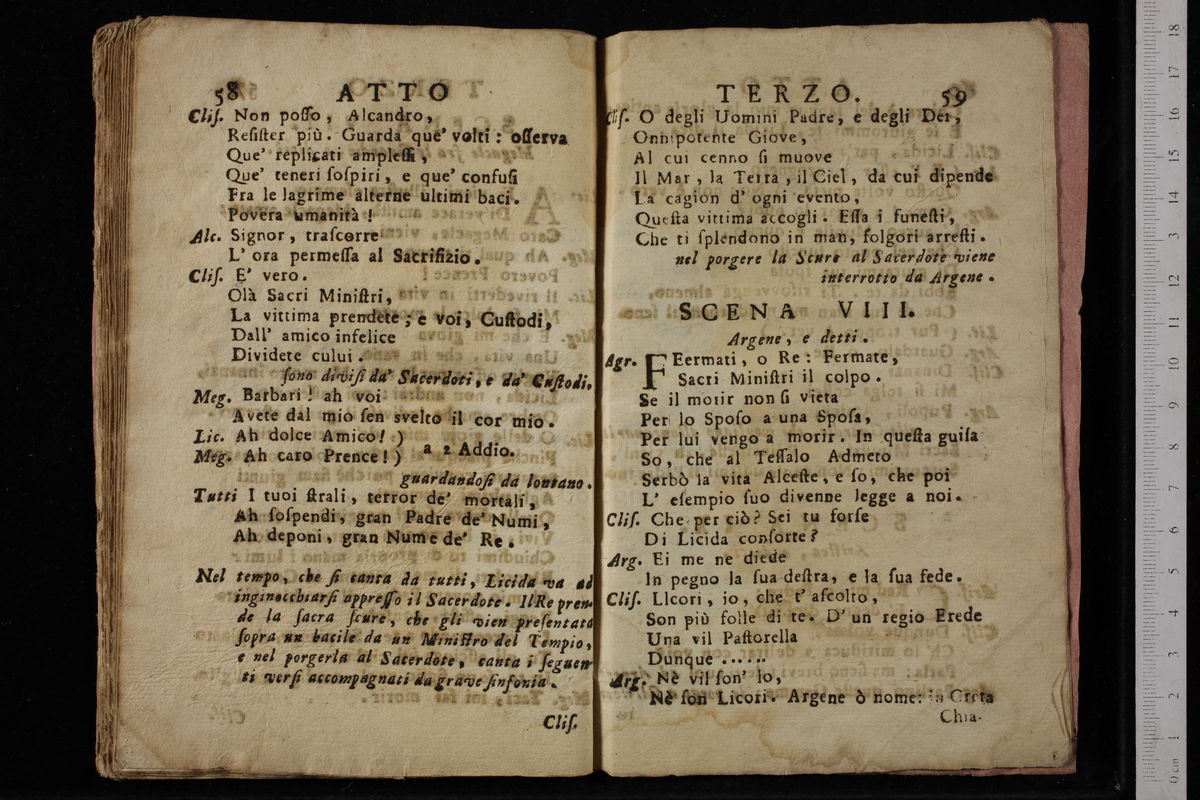 58 ATTO
Cliſ. Non poſſo, Alcandro,
Reſiſter più. Guarda que' volti: oſſerva
Que' replicati ampleſſi,
Que' teneri ſoſpiri, e que' confuſi
Fra le lagrime alterne ultimi baci.
Povera umanità!
Alc. Signor, traſcorre
L' ora permeſſa al Sacrifizio.
Cliſ. E' vero.
Olà Sacri Miniſtri,
La vittima prendete; e voi, Cuſtodi,
Dall' amico infelice
Dividete cului.
ſono diviſi da' Sacerdoti, e da' Cuſtodi.
Meg. Barbari! ah voi
Avete dal mio ſen svelto il cor mio.
Lic. Ah dolce Amico! )
Meg. Ah caro Prence! ) a 2 Addio.
guardandoſi da lontano.
Tutti I tuoi ſtrali, terror de' mortali,
Ah ſoſpendi, gran Padre de' Numi,
Ah deponi, gran Nume de' Re.
Nel tempo, che ſi canta da tutti, Licida va ad
inginocchiarſi appreſſo il Sacerdote. Il Re pren-
de la ſacra ſcure, che gli vien preſentata
ſopra un bacile da un Miniſtro del Tempio,
e nel porgerla al Sacerdote, canta i ſeguen-
ti verſi accompagnati da grave ſinfonia.
Cliſ.
TERZO. 59
Cliſ. O degli Uomini Padre, e degli Dei,
Onnipotente Giove,
Al cui cenno ſi muove
Il Mar, la Terra, il Ciel, da cui dipende
La cagion d' ogni evento,
Queſta vittima accogli. Eſſa i funeſti,
Che ti ſplendono in man, folgori arreſti.
nel porgere la Scure al Sacerdote viene
interrotto da Argene.
SCENA VIII.
Argene, e detti.
Agr. FEermati, o Re: Fermate,
Sacri Miniſtri il colpo.
Se il morir non ſi vieta
Per lo Spoſo a una Spoſa,
Per lui vengo a morir. In queſta guiſa
So, che al Teſſalo Admeto
Serbò la vita Alceſte, e ſo, che poi
L' eſempio ſuo divenne legge a noi.
Cliſ. Che per ciò? Sei tu forſe
Di Licida conſorte?
Arg. Ei me ne diede
In pegno la ſua deſtra, e la ſua fede.
Cliſ. LIcori, io, che t' aſcolto,
Son più folle di te. D' un regio Erede
Una vil Paſtorella
Dunque ......
Arg. Nè vil ſon' Io,
Nè ſon Licori. Argene ò nome: in Creta
Chia-
0 cm 1 2 3 4 5 6 7 8 9 10 11 12 13 14 15 16 17 18